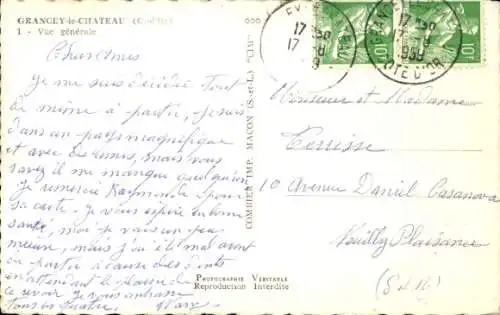 GRANCEY-le-CHATEAU (Côte-d'Or)
1 - Vue générale
Chers Amis
Je me suis décidée tout
de même à partir, je suis
dans un pays magnifique
et avec des amis, mais vous
savez il me manque quelqu'un
Je remercie Raymonde pour
sa carte. Je vous espère en bonne
santé, moi je vais un peu
mieux, mais j'ai eu mal avant
de partir à cause des dents
en attendant le plaisir de
ce revoir je vous embrasse
tous les quatre
COMBIER IMP. MACON (S.-et-L.) "CIM"
PHOTOGRAPHIE VÉRITABLE
Reproduction Interdite
17 30
17
CÔTE D'OR
0,10
0,10
Monsieur et Madame
10 Avenue Daniel Casanova
Neuilly Plaisance